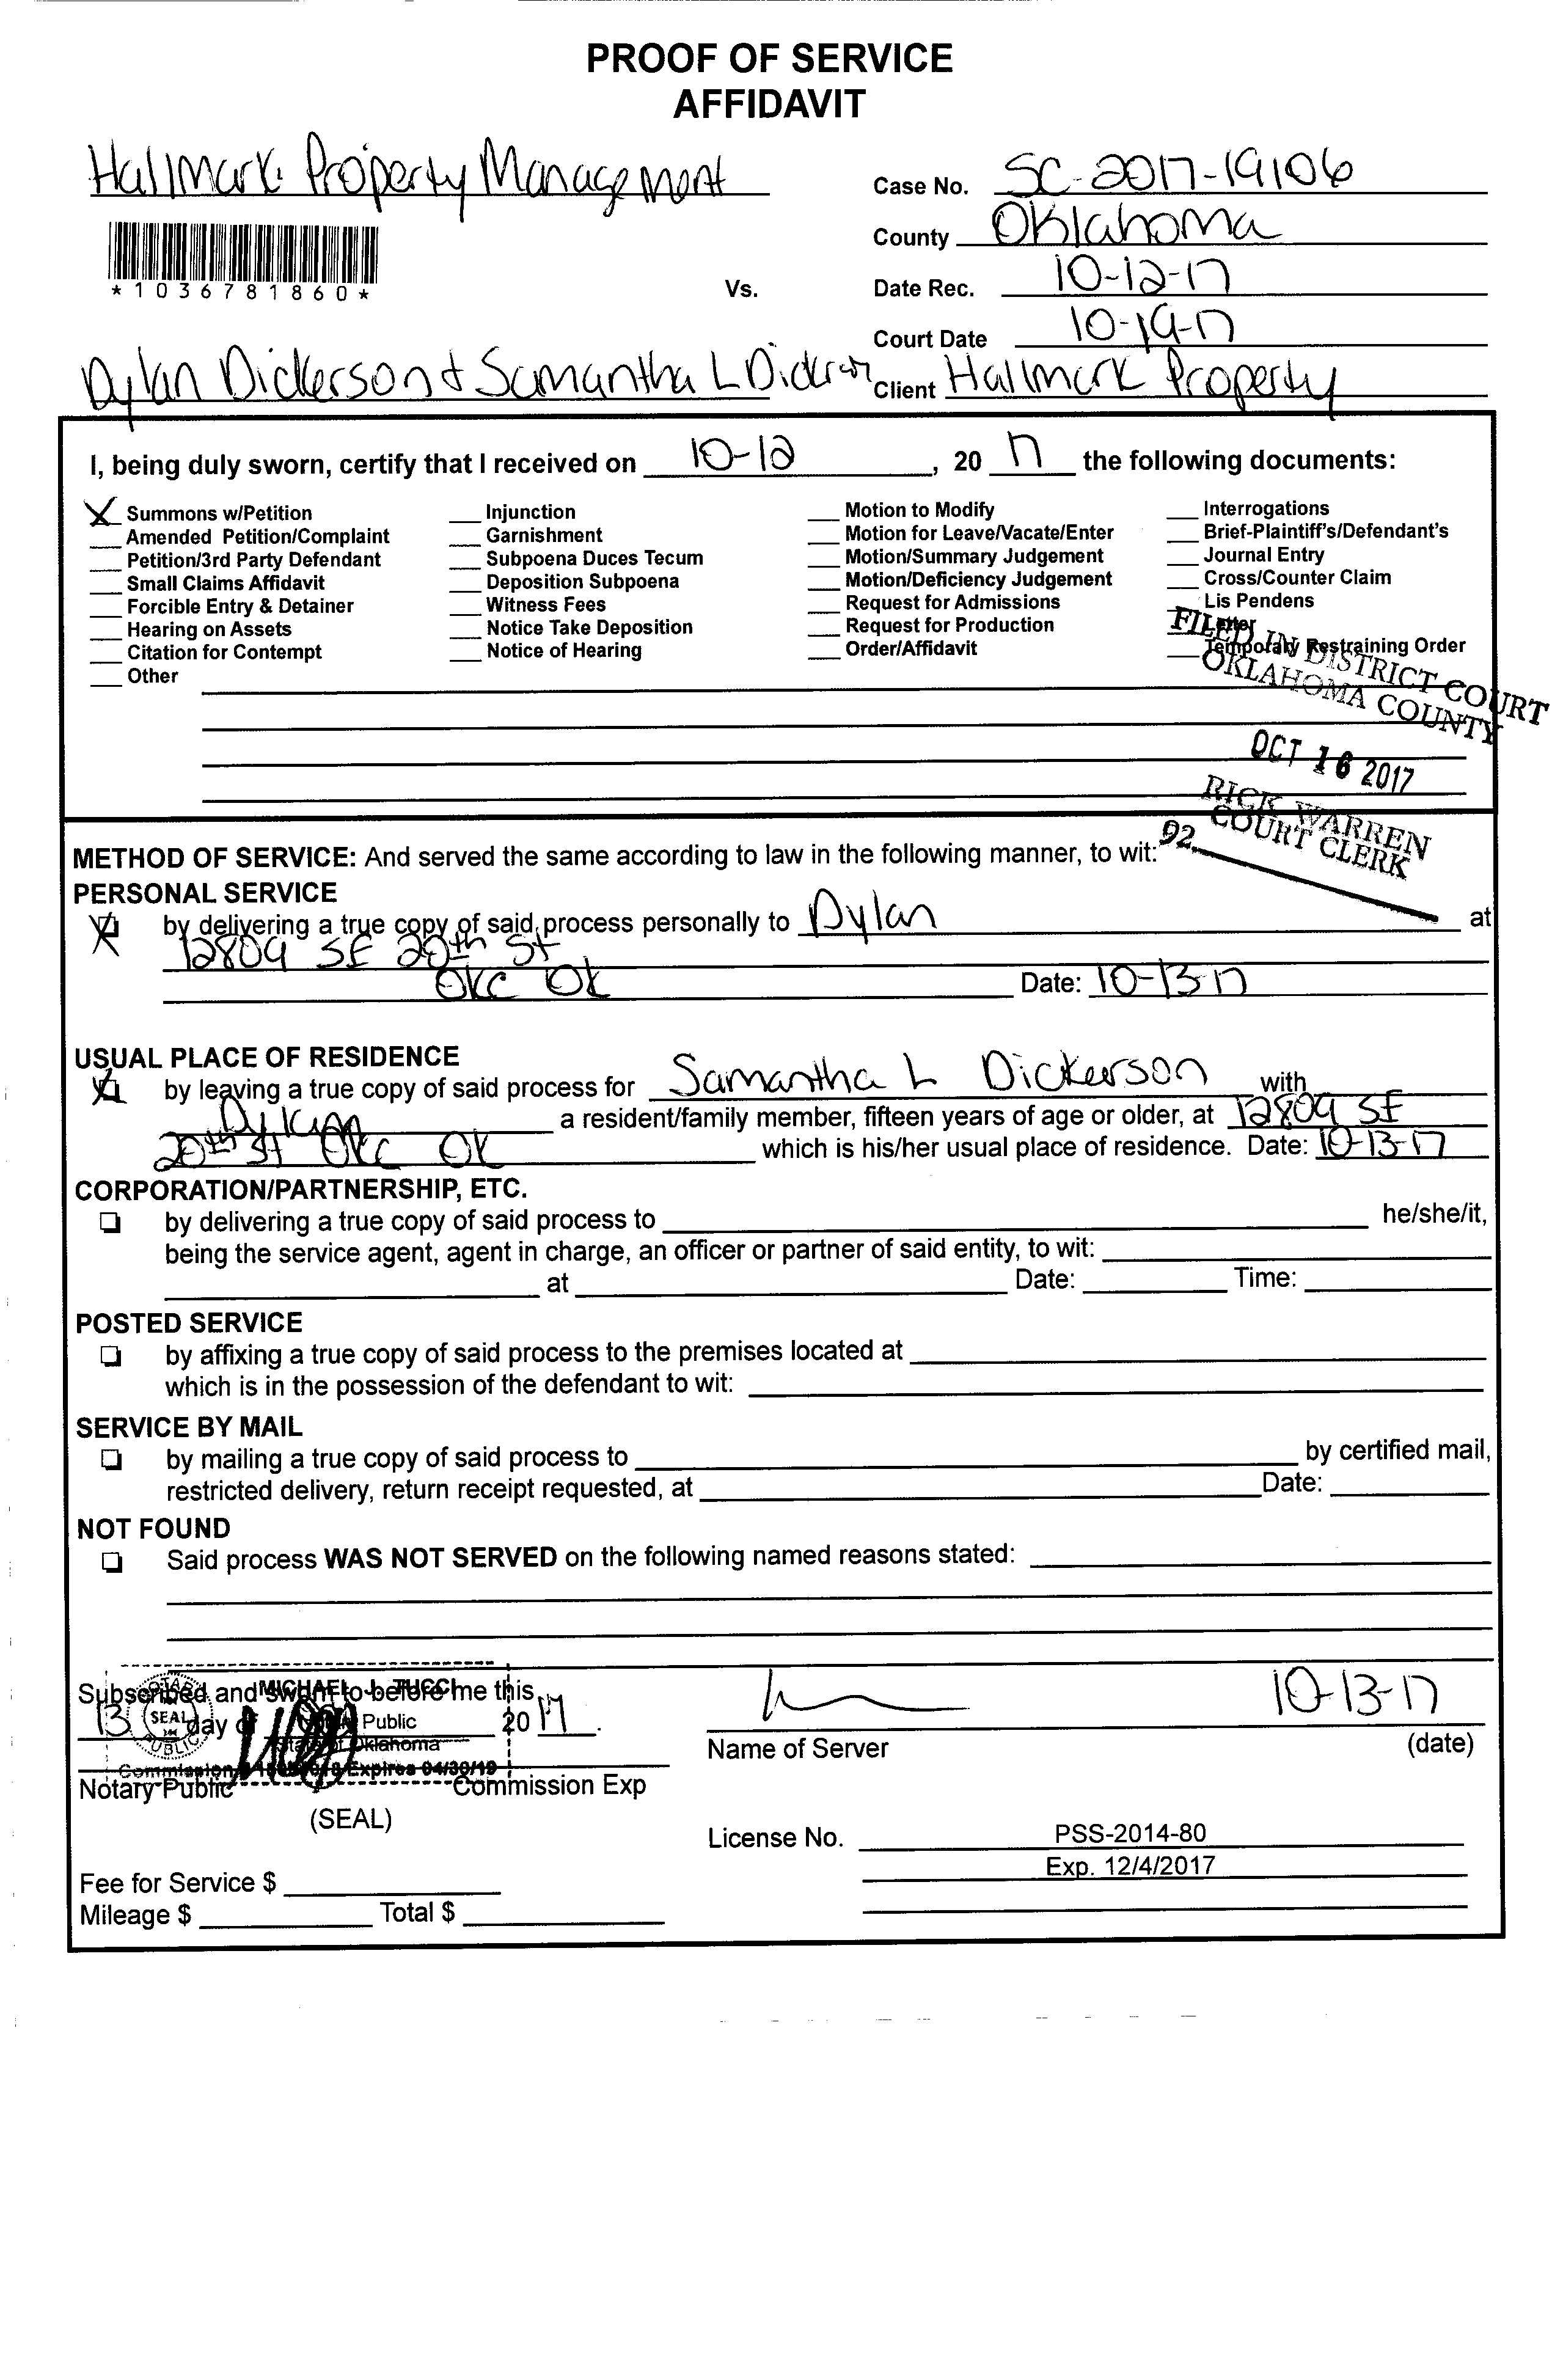 PROOF OF SERVICE
AFFIDAVIT
Hallmark Property Management
Case No. SC-2017-19106
County Oklahoma
*1036781860*
Vs.
Date Rec. 10-12-17
Court Date 10-19-17
Dylan Dickerson & Samantha L Dickerson
Client Hallmark Property
I, being duly sworn, certify that I received on 10-12, 2017 the following documents:
X Summons w/Petition
Amended Petition/Complaint
Petition/3rd Party Defendant
Small Claims Affidavit
Forcible Entry & Detainer
Hearing on Assets
Citation for Contempt
Other
Injunction
Garnishment
Subpoena Duces Tecum
Deposition Subpoena
Witness Fees
Notice Take Deposition
Notice of Hearing
Motion to Modify
Motion for Leave/Vacate/Enter
Motion/Summary Judgement
Motion/Deficiency Judgement
Request for Admissions
Request for Production
Order/Affidavit
Interrogations
Brief-Plaintiff's/Defendant's
Journal Entry
Cross/Counter Claim
Lis Pendens
Letter
Temporary Restraining Order
FILED IN DISTRICT COURT
OKLAHOMA COUNTY
OCT 16 2017
RICK WARREN
COURT CLERK
92
METHOD OF SERVICE: And served the same according to law in the following manner, to wit:
PERSONAL SERVICE
X by delivering a true copy of said process personally to Dylan at
12809 SE 20th St
OKC OK Date: 10-13-17
USUAL PLACE OF RESIDENCE
X by leaving a true copy of said process for Samantha L Dickerson with
Dylan a resident/family member, fifteen years of age or older, at 12809 SE
20th St OKC OK which is his/her usual place of residence. Date: 10-13-17
CORPORATION/PARTNERSHIP, ETC.
by delivering a true copy of said process to he/she/it,
being the service agent, agent in charge, an officer or partner of said entity, to wit:
at Date: Time:
POSTED SERVICE
by affixing a true copy of said process to the premises located at
which is in the possession of the defendant to wit:
SERVICE BY MAIL
by mailing a true copy of said process to by certified mail,
restricted delivery, return receipt requested, at Date:
NOT FOUND
Said process WAS NOT SERVED on the following named reasons stated:
Subscribed and sworn to before me this
13 day of 2017.
MICHAEL J. TUCCI
NOTARY PUBLIC
SEAL
Public
State of Oklahoma
Commission Expires 04/30/19
Notary Public Commission Exp
(SEAL)
10-13-17
Name of Server (date)
License No. PSS-2014-80
Exp. 12/4/2017
Fee for Service $
Mileage $ Total $